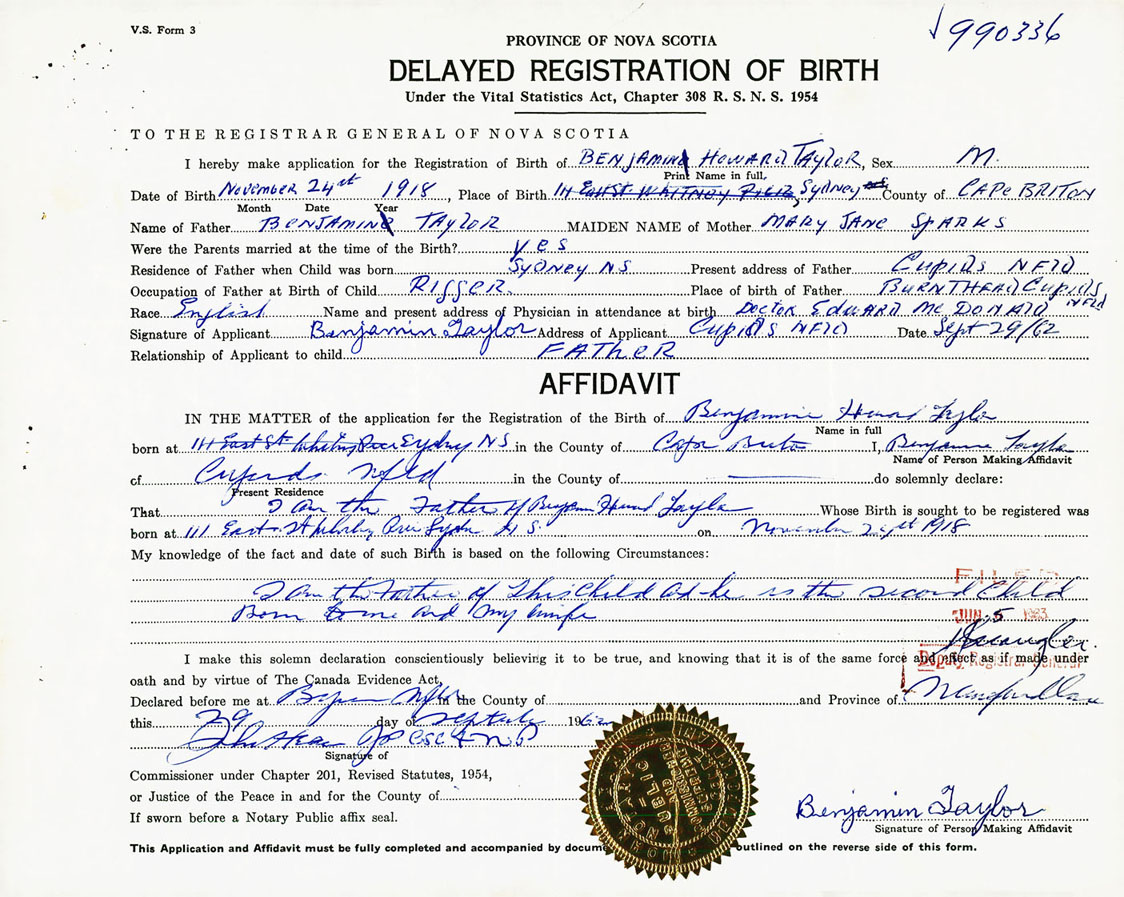 V.S. Form 3
990336
PROVINCE OF NOVA SCOTIA
DELAYED REGISTRATION OF BIRTH
Under the Vital Statistics Act, Chapter 308 R. S. N. S. 1954
TO THE REGISTRAR GENERAL OF NOVA SCOTIA
I hereby make application for the Registration of Birth of BENJAMIN HOWARD TAYLOR, Sex M.
Print Name in full,
Date of Birth November 24st 1918, Place of Birth 111 East St WHITNEY PIER, Sydney NS County of CAPE BRITON
Month Date Year
Name of Father BENJAMIN TAYLOR MAIDEN NAME of Mother MARY JANE SPARKS
Were the Parents married at the time of the Birth? yes
Residence of Father when Child was born Sydney NS Present address of Father Cupids NFLD
Occupation of Father at Birth of Child Rigger. Place of birth of Father BURNT HEAD Cupids NFLD
Race English Name and present address of Physician in attendance at birth Doctor EDWARD Mc DONALD
Signature of Applicant Benjamin Taylor Address of Applicant Cupids NFLD Date Sept 29/62
Relationship of Applicant to child FATHER
AFFIDAVIT
IN THE MATTER of the application for the Registration of the Birth of Benjamin Howard Taylor
Name in full
born at 111 East St Whitney Pier Sydney NS in the County of Cape Breton I, Benjamin Taylor
Name of Person Making Affidavit
of Cupids Nfld in the County of do solemnly declare:
Present Residence
That I am the Father of Benjamin Howard Taylor Whose Birth is sought to be registered was
born at 111 East St Whitney Pier Sydney N S on November 24st 1918
My knowledge of the fact and date of such Birth is based on the following Circumstances:
I am the Father of This Child and he is the second Child
Born to me and my wife
FILED
JUN 5 1963
Deputy Registrar General
I make this solemn declaration conscientiously believing it to be true, and knowing that it is of the same force and effect as if made under
oath and by virtue of The Canada Evidence Act,
Declared before me at Nfld in the County of and Province of Newfoundland
this 29 day of September 1962
Signature of
Commissioner under Chapter 201, Revised Statutes, 1954,
or Justice of the Peace in and for the County of
If sworn before a Notary Public affix seal.
Benjamin Taylor
Signature of Person Making Affidavit
This Application and Affidavit must be fully completed and accompanied by docum outlined on the reverse side of this form.